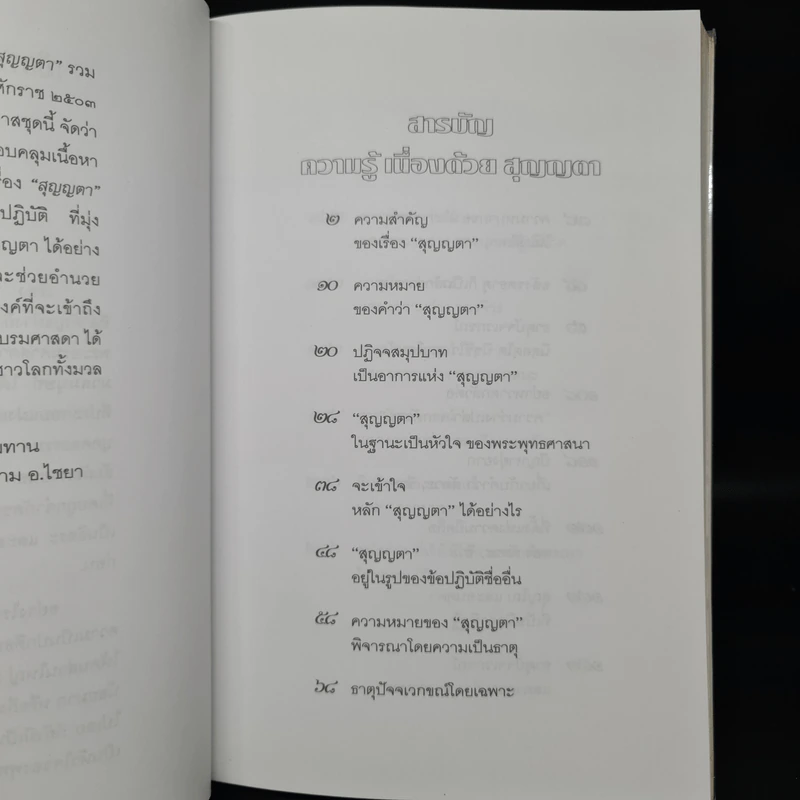 สุญญตา” รวม
ทักราช ๒๕๐๓
าสชุดนี้ จัดว่า
อบคลุมเนื้อหา
รื่อง “สุญญตา”
ปฏิบัติ ที่มุ่ง
ญตา ได้อย่าง
ะช่วยอำนวย
งค์ที่จะเข้าถึง
บรมศาสดา ได้
ชาวโลกทั้งมวล
ทาน
าม อ.ไชยา
สารบัญ
ความรู้ เนื่องด้วย สุญญตา
๒ ความสำคัญ
ของเรื่อง “สุญญตา”
๑๐ ความหมาย
ของคำว่า “สุญญตา”
๒๐ ปฏิจจสมุปบาท
เป็นอาการแห่ง “สุญญตา”
๒๘ “สุญญตา”
ในฐานะเป็นหัวใจ ของพระพุทธศาสนา
๓๘ จะเข้าใจ
หลัก “สุญญตา” ได้อย่างไร
๔๘ “สุญญตา”
อยู่ในรูปของข้อปฏิบัติชื่ออื่น
๕๘ ความหมายของ “สุญญตา”
พิจารณาโดยความเป็นธาตุ
๖๘ ธาตุปัจจเวกขณ์โดยเฉพาะ